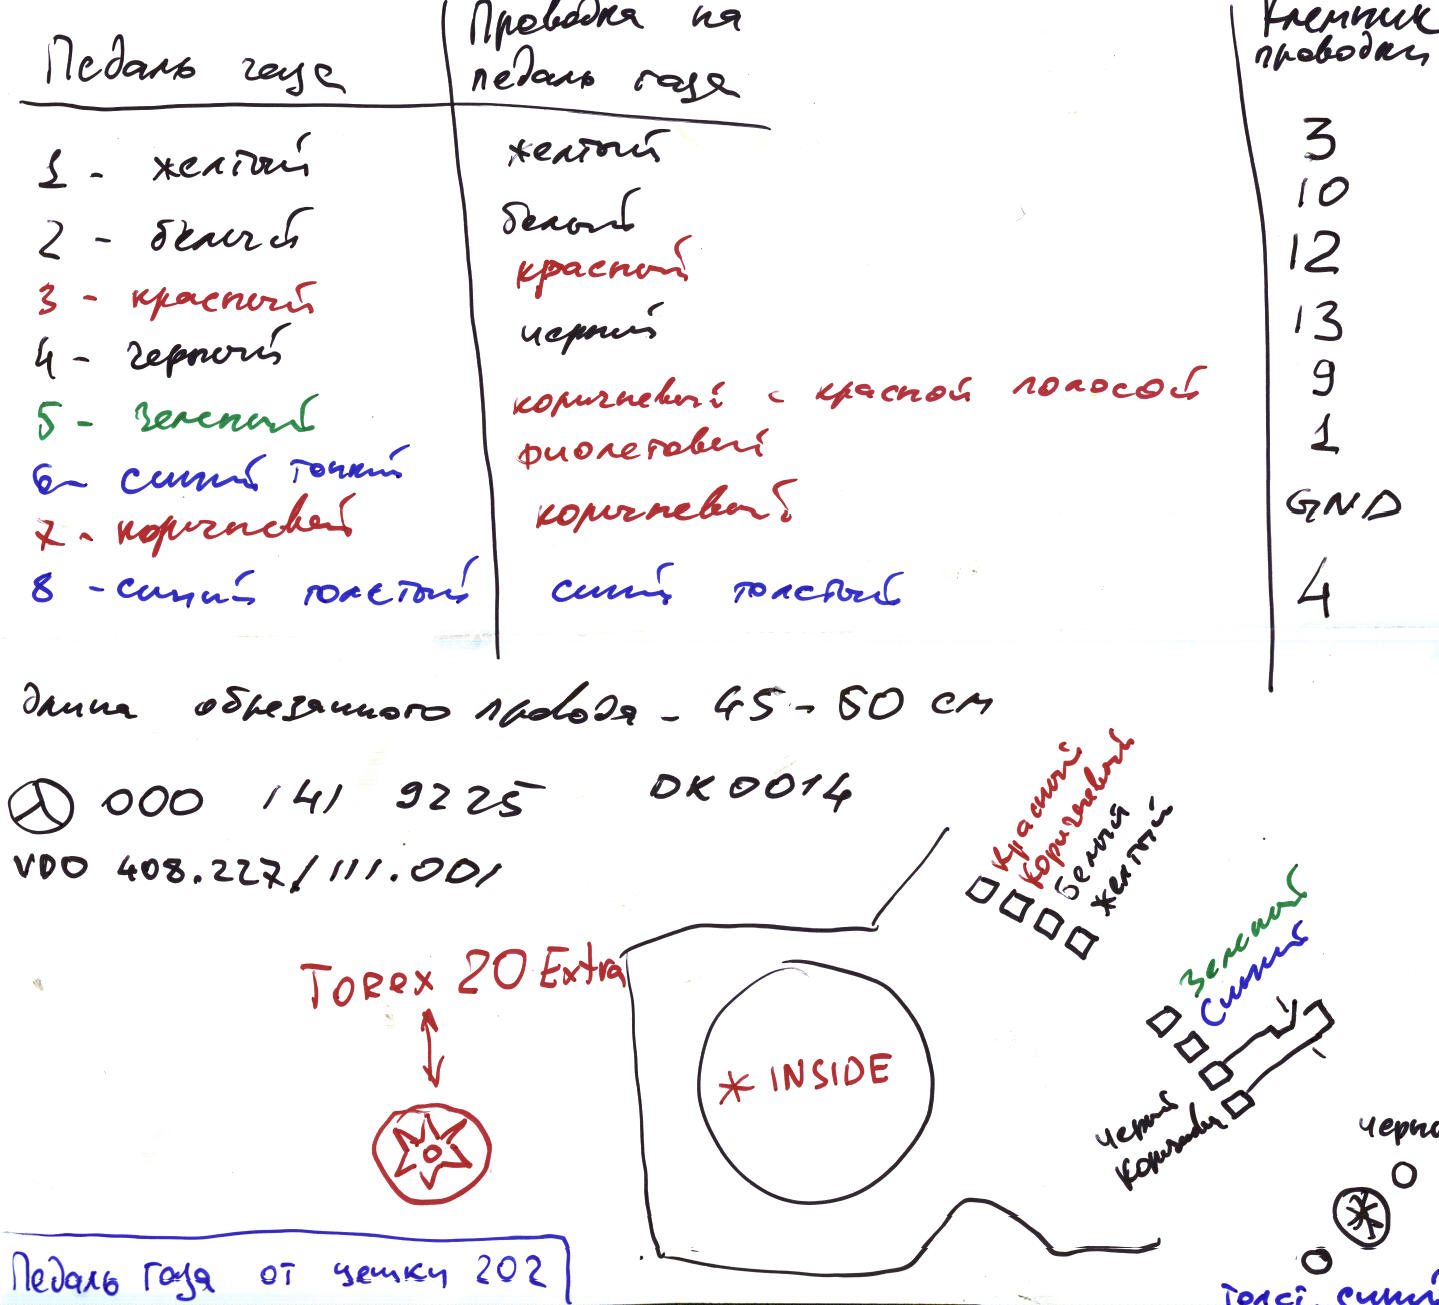 Педаль газа
Проводка на
педаль газа
Клемник
проводки
1 - желтый желтый 3
2 - белый белый 10
3 - красный красный 12
4 - черный черный 13
5 - зеленый коричневый с красной полосой 9
6 - синий тонкий фиолетовый 1
7 - коричневый коричневый GND
8 - синий толстый синий толстый 4
длина обрезанного провода - 45 - 50 см
000 141 9225 DK0014
VDO 408.227/111.001
красный
коричневый
белый
желтый
Зеленый
Синий
Torex 20 Extra
* INSIDE
черный
коричневый
черн
Педаль газа от цешки 202
толст. синий